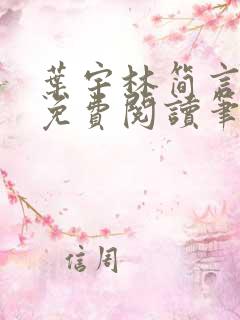 葉宇林简言
免費閱讀筆
信周